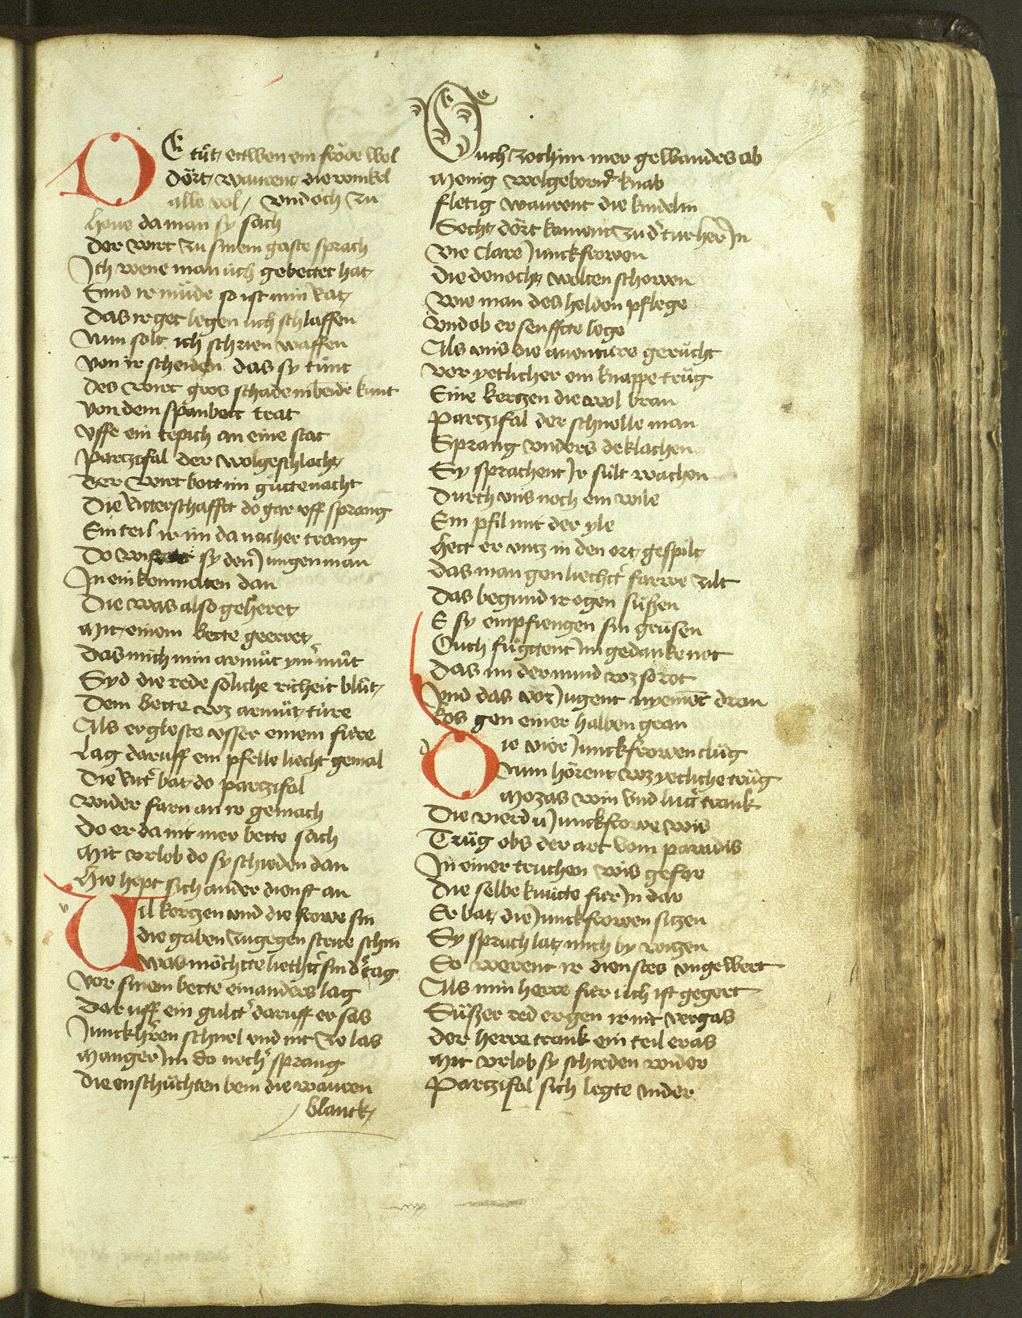 OE tuͤt ettwen ein froͤde wol
Doͤrt / wauͤrent die winkel
alle vol / Vnd och zuͦ
Houe da man sy sach
Der wirt zu sinem gaste sprach
Ich wene man uͥch gebettet hat
Sind ir muͤde so ist min Rat
Das ir get legen uͥch schlaffen
Nun solt ich schrien waffen
Von ir scheiden das sy tuͦnt
Des wirt gros schade in beide kunt
Von dem spanbett trat
Vffe ein tepich an eine stat
Partzifal der wolgeschlacht
Der wirt bott im guͤtte nacht
Die Ritterschafft do gar vff sprang
Ein teil ir im da nacher trang
Do wistent sy den Jungen man
In ein komnaten dan
Die was also geheret
Mit einem bette geerret
Das mich min armuͦt ymer muͤt
Syd die rede soͤliche richeit bluͤt
Dem bette wz armuͦt tuͥre
Als er gloste vsser einem fuͥre
Lag daruff ein pfelle liecht gemal
Die Ritter bat do partzifal
Wider farn an ir gemach
Do er da nit mer bette sach
Mit vrlob do sy schieden dan
Hie hept sich ander dienst an
Vil kertzen vnd die frowe sin
die gaben zugegen streite schin
Was moͤchte liechter sin der tag
Vor sinem bette ein anders lag
Dar uff ein gulter daruff er sas
Junckherren schnel vnd nit zu las
Manger Im do necher sprang
Die enschuͦchten bein die wauren
blanck /
Ouch zoch im mer gewandes ab
Menig wolgeborner knab
fletig waurent die kindelin
Secht doͤrt koment zu der tur her In
Vie clare Junckfrowen
Die dennocht wolten schowen
Wie man des helden pflege
Vnd ob er senffte lege
Als vns die auenture geruͤcht
Vor yetlicher ein knappe truͤg
Eine kertzen die wol bran
Partzifal der schnelle man
Sprang vnders deklachen
Sy sprachent Ir suͥlt wachen
Durch vns noch ein wile
Ein pfil mit der yle
Hett er vntz in den ort gespilt
Das man gen liechter farwe zilt
Das begund ir ogen suͤssen
E sy empfiengen sin gruͤsen
Ouch fuͤgtent Im gedanke not
Das im der mund wz so rot
Vnd das vor Jugent nyemot dran
Kos gen einer halben gran
Die vier Junckfrowen cluͦg
Nun hoͤrent wz yetliche truͤg
Mozas win vnd luter trank
Die vierdu Junckfrowe wis
Truͦg obs der art vom paradis
In einer truchen wis gefar
Die selbe knuͥtte fur In dar
Er bat die Junckfrowen sitzen
Sy sprach lat mich by witzen
So werent ir dienstes vngewert
Als min herre fur uͥch ist gegert
Suͤsser red er gen ir nit vergas
Der herre trank ein teil er as
Mit vrlob sy schieden wider
Partzifal sich legte nider